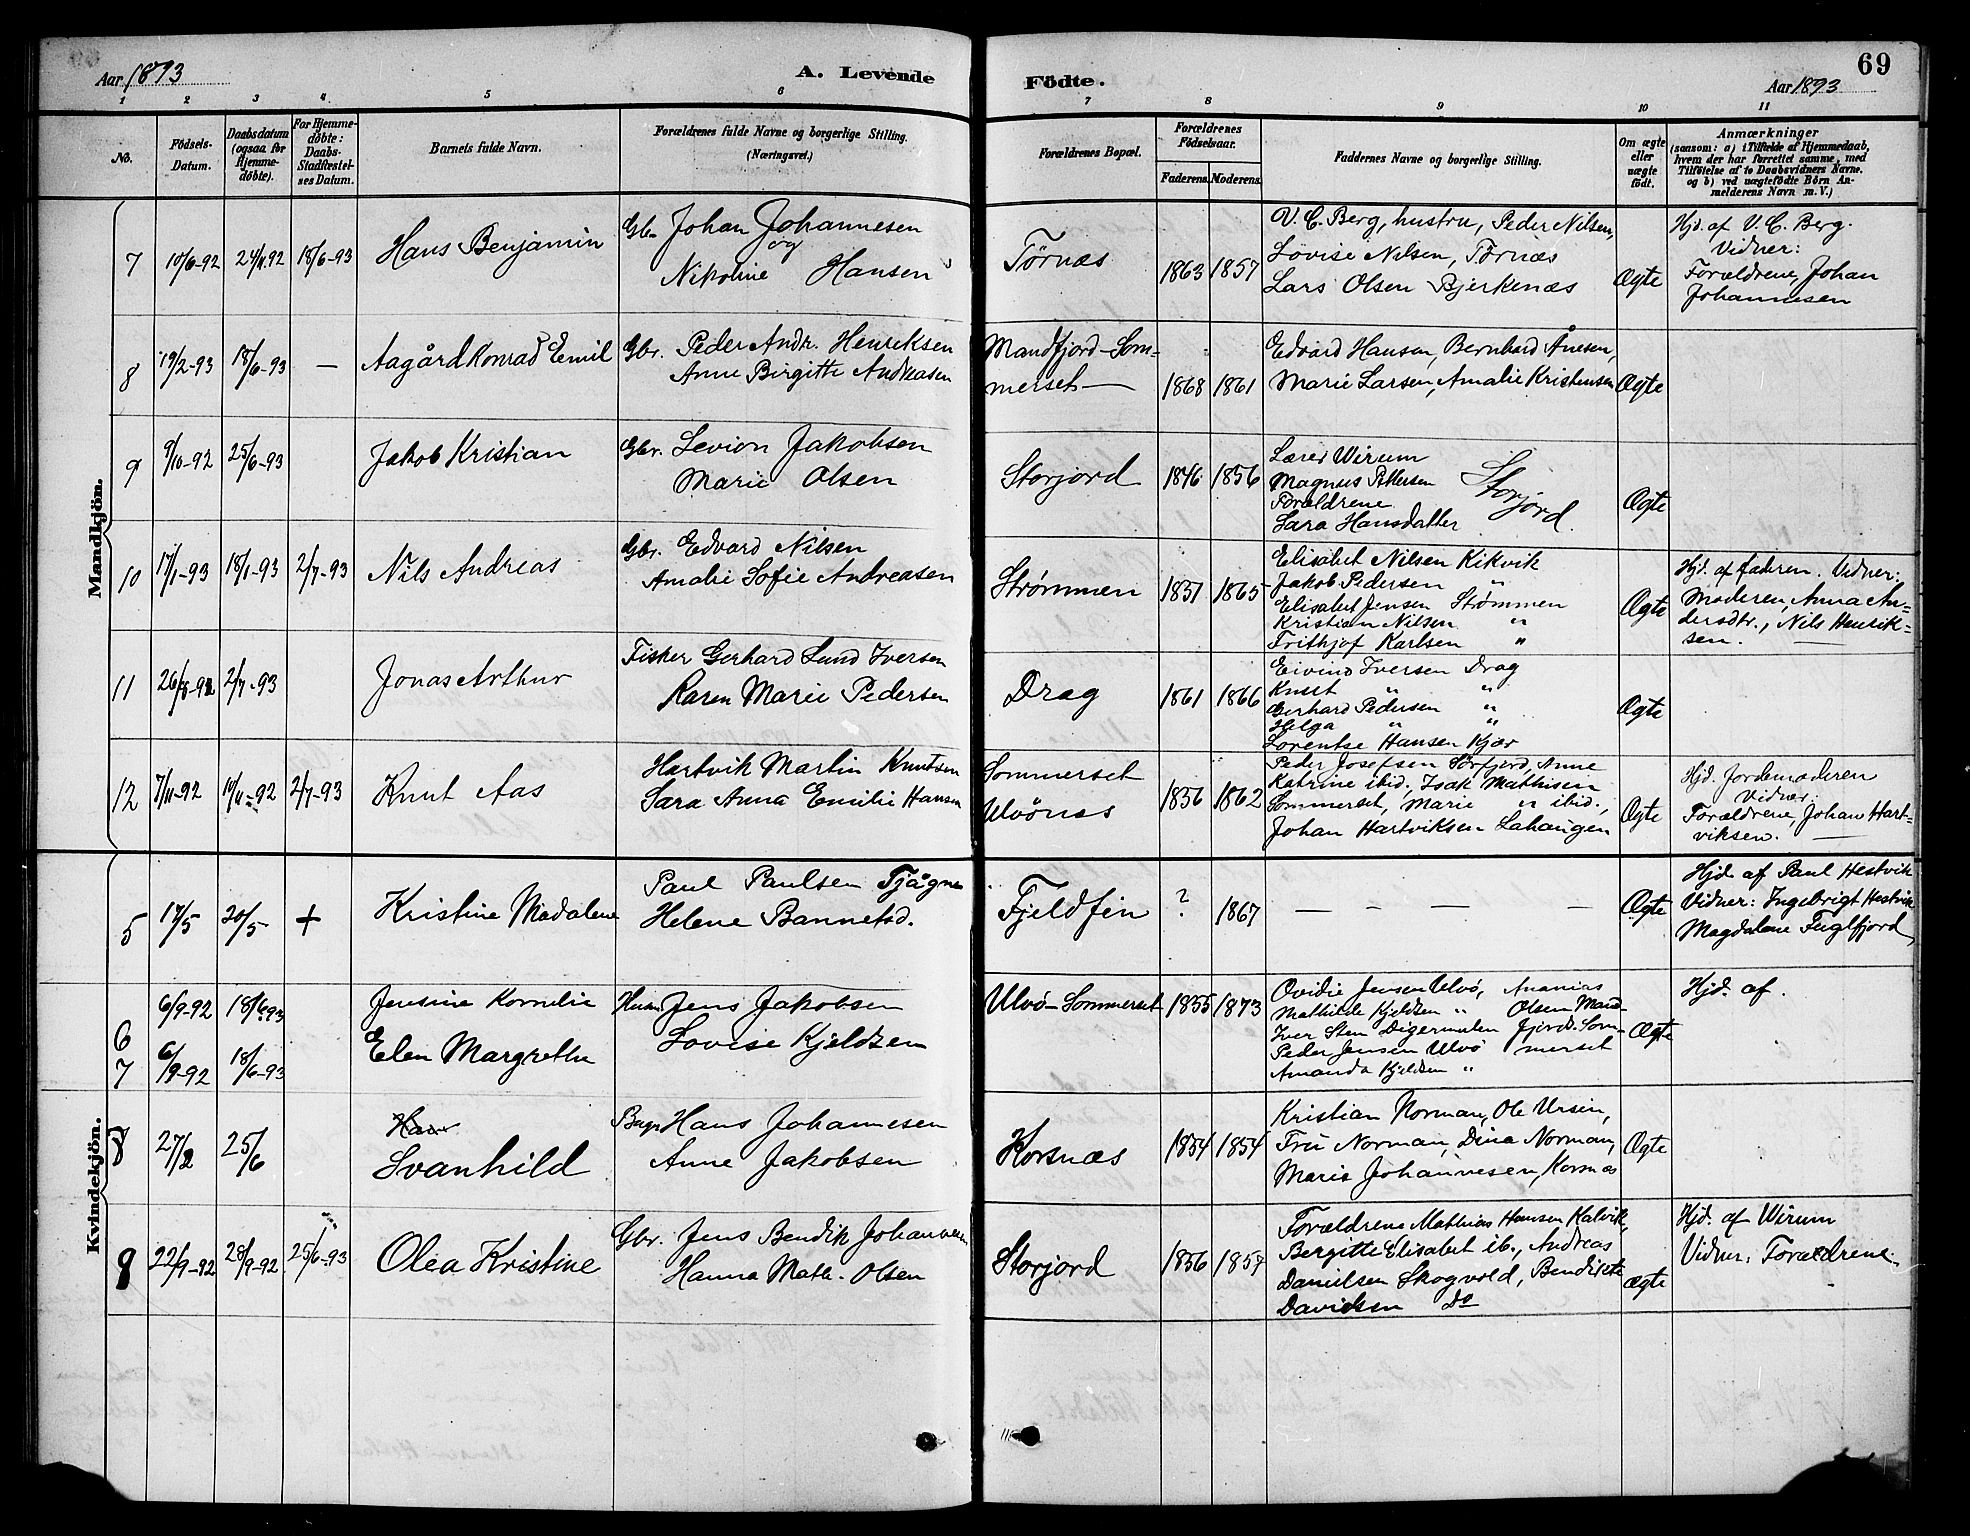 69
Aar 1893 A. Levende Födte. Aar 1893
1 2 3 4 5 6 7 8 9 10 11
No.
Födsels-
Datum.
Daabsdatum
(ogsaa for
Hjemme-
døbte).
For Hjemme-
døbte:
Daabs-
Stadfæstel-
ses Datum.
Barnets fulde Navn.
Forældrenes fulde Navne og borgerlige Stilling.
(Næringsvei.)
Forældrenes Bopæl.
Forældrenes
Fødselsaar.
Faderens. Moderens.
Faddernes Navne og borgerlige Stilling.
Om ægte
eller
uægte
født.
Anmærkninger
(saasom: a) i Tilfælde af Hjemmedaab,
hvem der har forrettet samme, med
Tilføielse af to Daabsvidners Navne.
og b) ved uægtefødte Börn An-
melderens Navn m. V.)
Mandkjön.
7 10/6-92 24/11.92 18/6-93 Hans Benjamin
Gbr. Johan Johannesen
og
Nikoline Hansen
Törnæs 1863 1857
V. C. Berg, hustru, Peder Nilsen,
Lovise Nilsen, Törnæs
Lars Olsen Bjerkenæs
Ægte
Hjd. af V. C. Berg.
Vidner:
Forældrene, Johan
Johannesen
8 19/2-93 18/6-93 — Aagård Konrad Emil
Gbr. Peder Andr. Henriksen
Anne Birgitte Andreasen
Mandfjord-Som-
merset— 1868 1861
Edvard Hansen, Bernhard Ånesen,
Marie Larsen, Amalie Kristensen
Ægte
9 9/10-92 25/6-93 Jakob Kristian
Gbr. Levion Jakobsen
Marie Olsen
Storjord 1846 1856
Lærer Wirum
Magnus Pettersen
Forældrene
Sara Hansdatter
Storjord.
Ægte
10 17/1-93 18/1-93 2/7-93 Nils Andreas
Gbr. Edvard Nilsen
Amalie Sofie Andreasen
Strømmen 1831 1865
Elisabet Nilsen Kikvik
Jakob Pedersen "
Elisabet Jensen Strømmen
Kristian Nilsen "
Frithjof Karlsen "
Ægte
Hjd. af faderen. Vidner:
Moderen, Anna An=
dersdtr., Nils Henrik=
sen.
11 26/8-92 2/7-93 Jonas Arthur
Fisker Gerhard Lund Iversen
Karen Marie Pedersen
Drag 1861 1866
Eivind Iversen Drag
Knut " "
Gerhard Pedersen "
Helga " "
Lorentse Hansen Kjær
Ægte
12 7/11-92 11/11-92 2/7-93 Knut Aas
Hartvik Martin Knutsen
Sara Anna Emilie Hansen
Sommerset
Ulvönæs 1856 1862
Peder Josefsen Sörfjord, Anne
Katrine ibid, Isak Mathisen
Sommerset, Marie " ibid.,
Johan Hartviksen Lahaugen
Ægte
Hjd. Jordemoderen
Vidner:
Forældrene, Johan Hart=
viksen.
Kvindekjön.
5 17/5 20/5 + Kristine Madalene
Paul Paulsen
Helene Bannetsd.
Fjeldfin ? 1867
— — — —
Ægte
Hjd. af Paul Hestvik
Vidner: Ingebrigt Hestvik
Magdalene Fuglfjord
6 6/9-92 18/6-93 Jensine Kornelie
7 6/9-92 18/6-93 Elen Margrethe
Husm. Jens Jakobsen
Lovise Kjeldsen
Ulvö-Sommerset 1855 1873
Ovidie Jensen Ulvö, Ananias
Mathilde Kjeldsen " Olsen Mand-
Iver Sten Digermulen fjord. Som-
Peder Jensen Ulvö merset
Amanda Kjeldsen "
Ægte
Hjd. af.
8 27/2 25/6
Svanhild
Hans Johannesen
Anne Jakobsen
Korsnæs 1854 1854
Kristian Norman, Ole Ursin,
Fru Norman, Dina Norman,
Marie Johannesen, Korsnæs
Ægte
9 22/9-92 28/9-92 25/6-93 Olea Kristine
Gbr. Jens Bendik Johannesen
Hanna Math. Olsen
Storjord 1856 1857
Forældrene Mathias Hansen Kalvik,
Bergitte Elisabet ib., Andreas
Danielsen Skogvold, Bendikte
Davidsen Do
ægte
Hjd. af Wirum
Vidner: Forældrene.